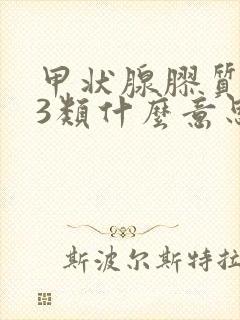 甲状腺膠質
3類什麼意思
斯波尔斯特拉